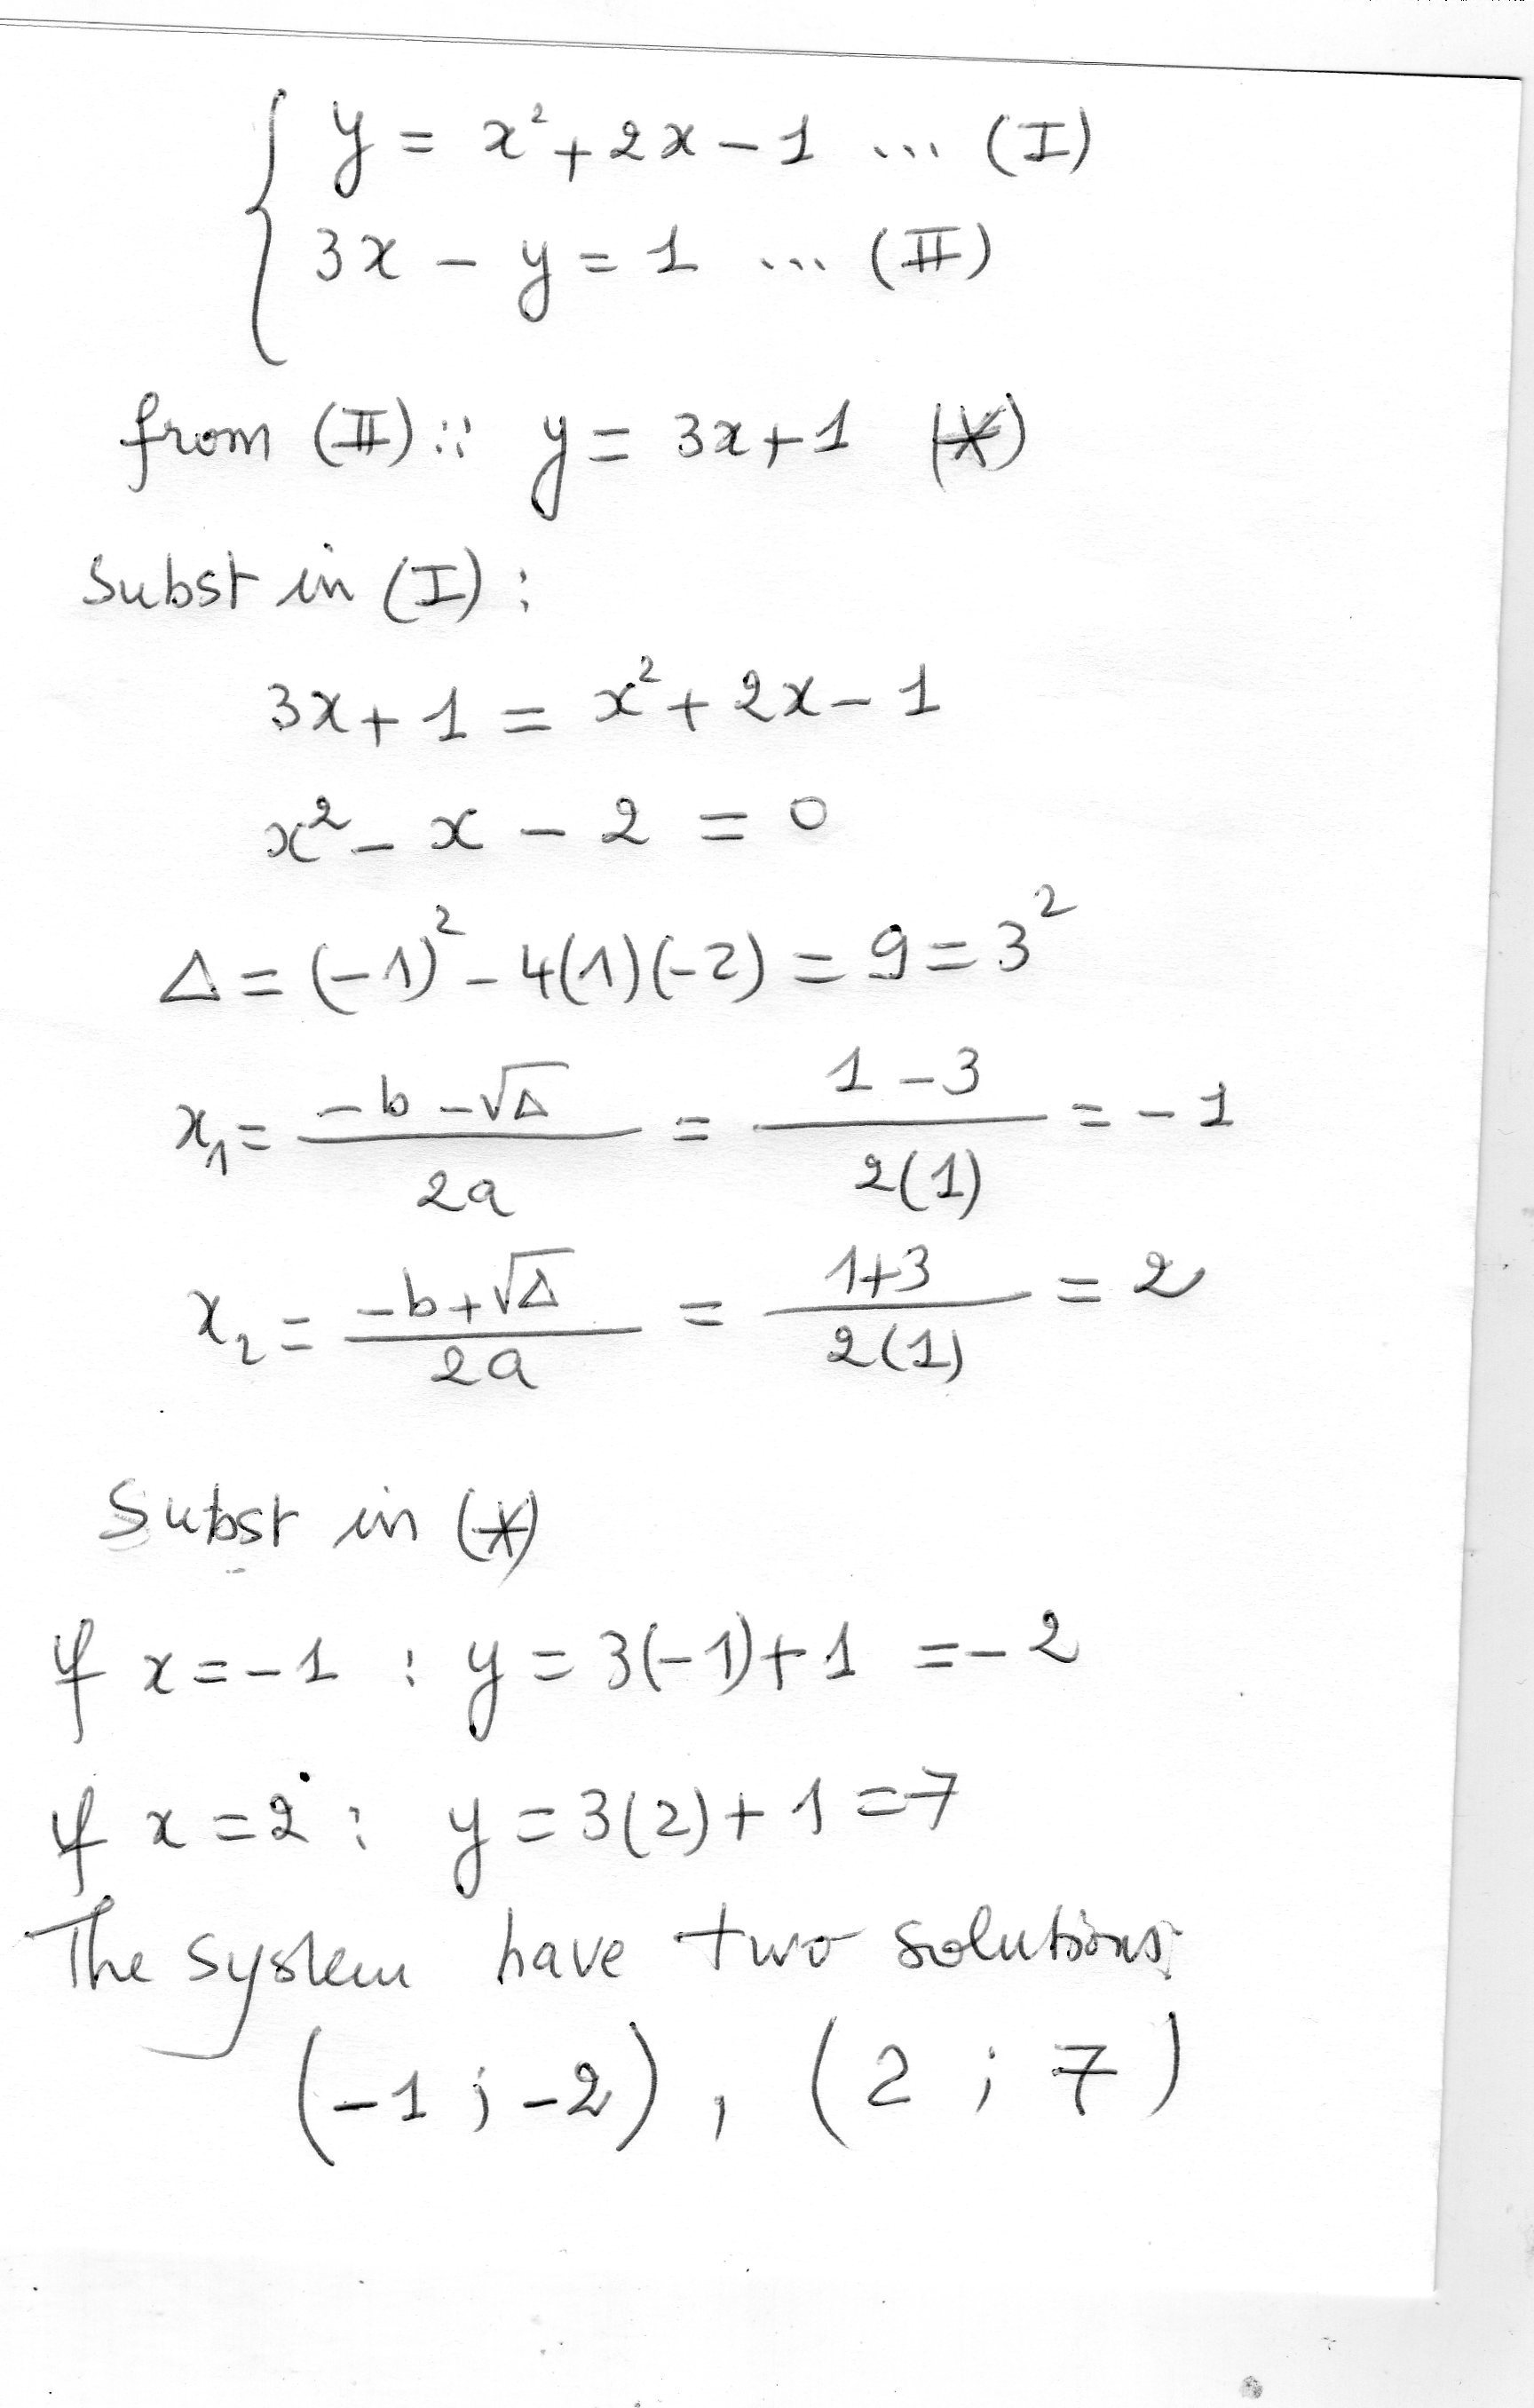 y = x² + 2x - 1 ... (I)
3x - y = 1 ... (II)
from (II) :: y = 3x + 1 (*)
Subst in (I) :
3x + 1 = x² + 2x - 1
x² - x - 2 = 0
Δ = (-1)² - 4(1)(-2) = 9 = 3²
x₁ = (-b - √Δ)/(2a) = (1 - 3)/(2(1)) = -1
x₂ = (-b + √Δ)/(2a) = (1+3)/(2(1)) = 2
Subst in (*)
if x = -1 : y = 3(-1) + 1 = -2
if x = 2 : y = 3(2) + 1 = 7
The system have two solutions
(-1 ; -2) , (2 ; 7)